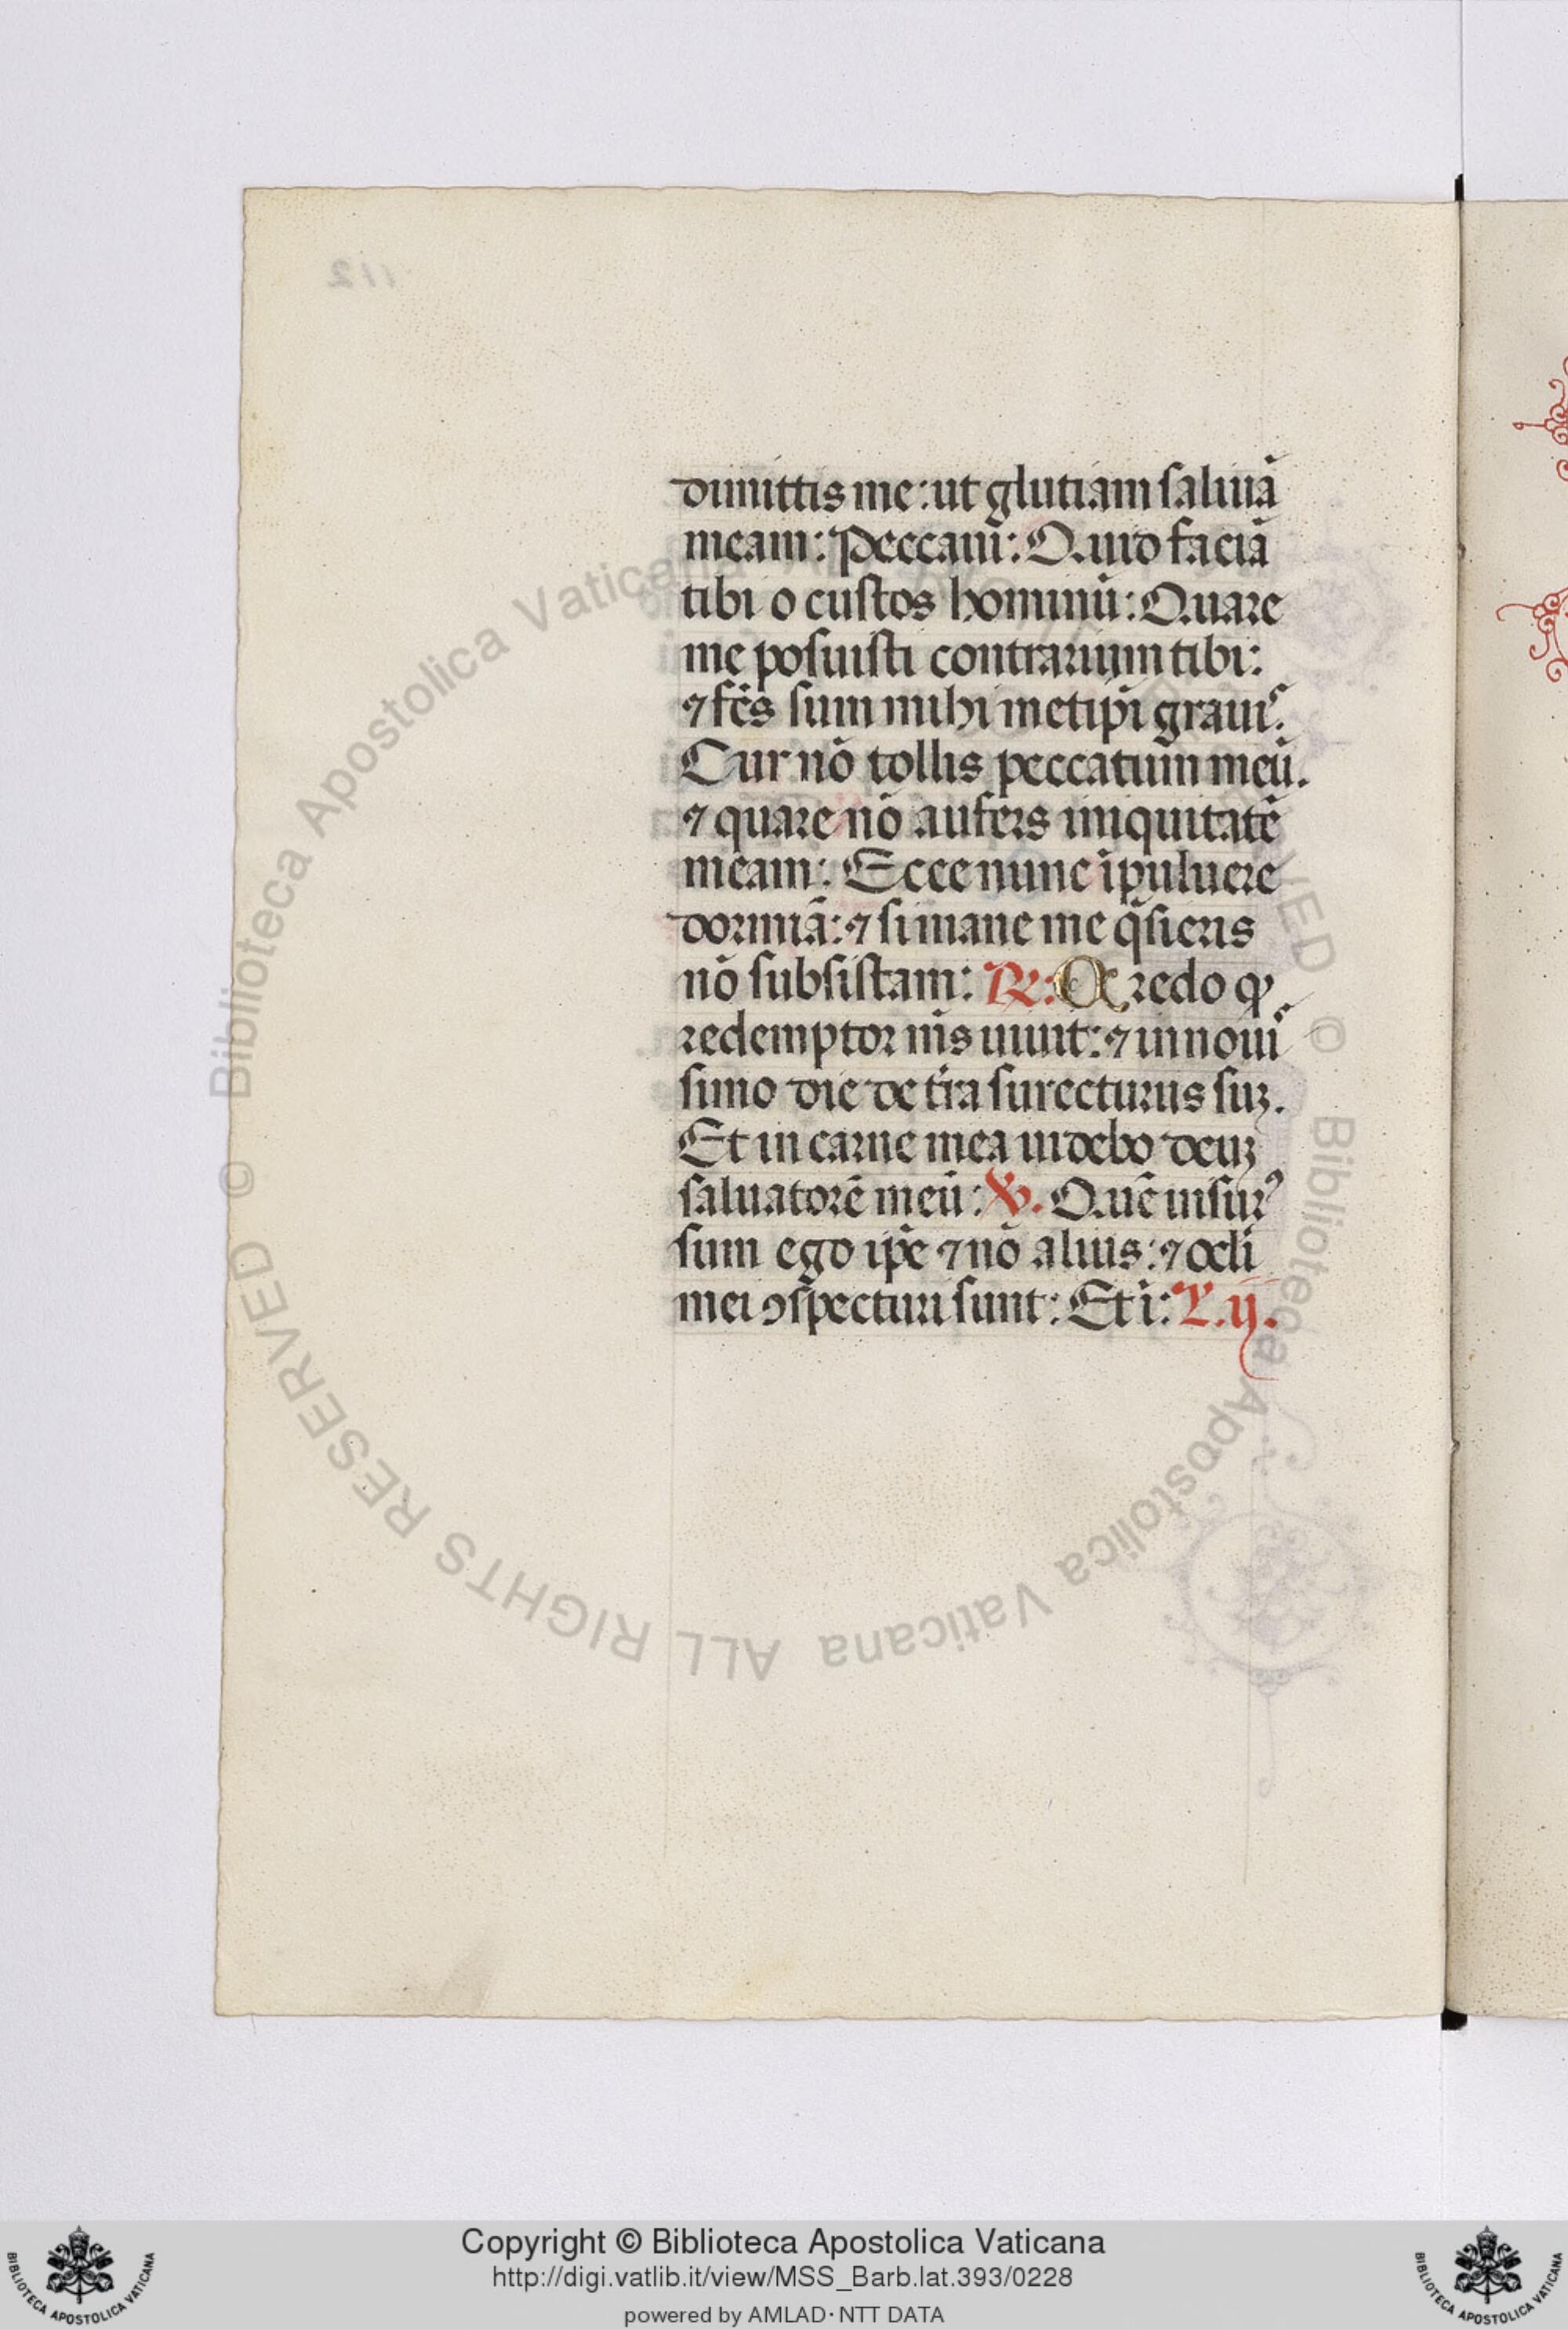 dimittis me: ut glutiam saliuā
meam: Peccaui: Quid faciā
tibi o custos hominū: Quare
me posuisti contrarium tibi:
⁊ fc̄s sum mihi metip̄i grauiˢ.
Cur nō tollis peccatum meū.
⁊ quare nō aufers iniquitatē
meam: Ecce nunc ī puluere
dormiā: ⁊ si mane me q̄sieris
nō subsistam: ℟: Credo ꝙ
redemptor m̄s uiuit: ⁊ in nouiˢ
simo die de t̄ra surecturus suꝫ.
Et in carne mea uidebo deuꝫ
saluatorē meū: ℣. Quē uisurꝰ
sum ego ip̄e ⁊ nō alius: ⁊ oc̄li
mei ꝯspecturi sunt: Et ī: L. ij.
112
Biblioteca Apostolica Vaticana
ALL RIGHTS RESERVED ©
Biblioteca Apostolica Vaticana
Copyright © Biblioteca Apostolica Vaticana
http://digi.vatlib.it/view/MSS_Barb.lat.393/0228
powered by AMLAD·NTT DATA
BIBLIOTECA APOSTOLICA VATICANA
BIBLIOTECA APOSTOLICA VATICANA